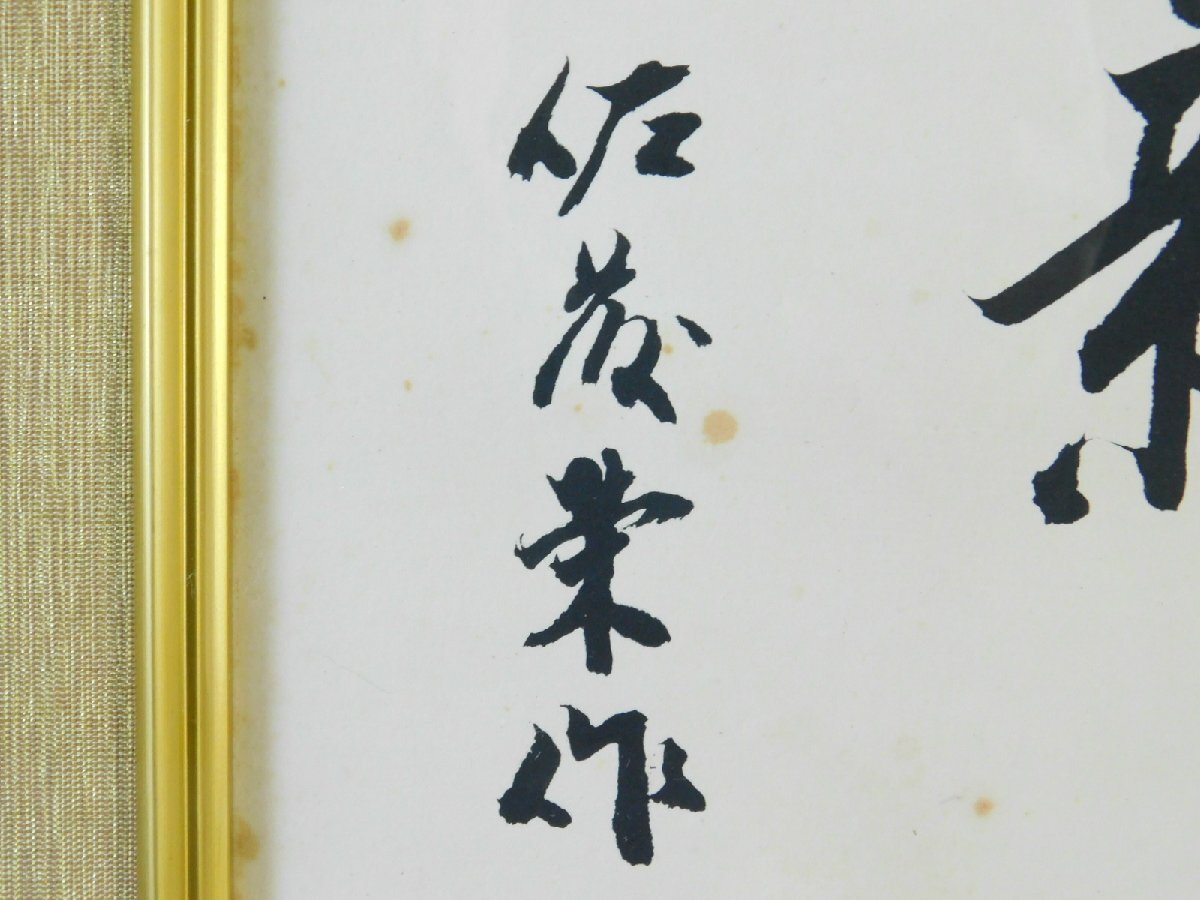 佐藤栄作